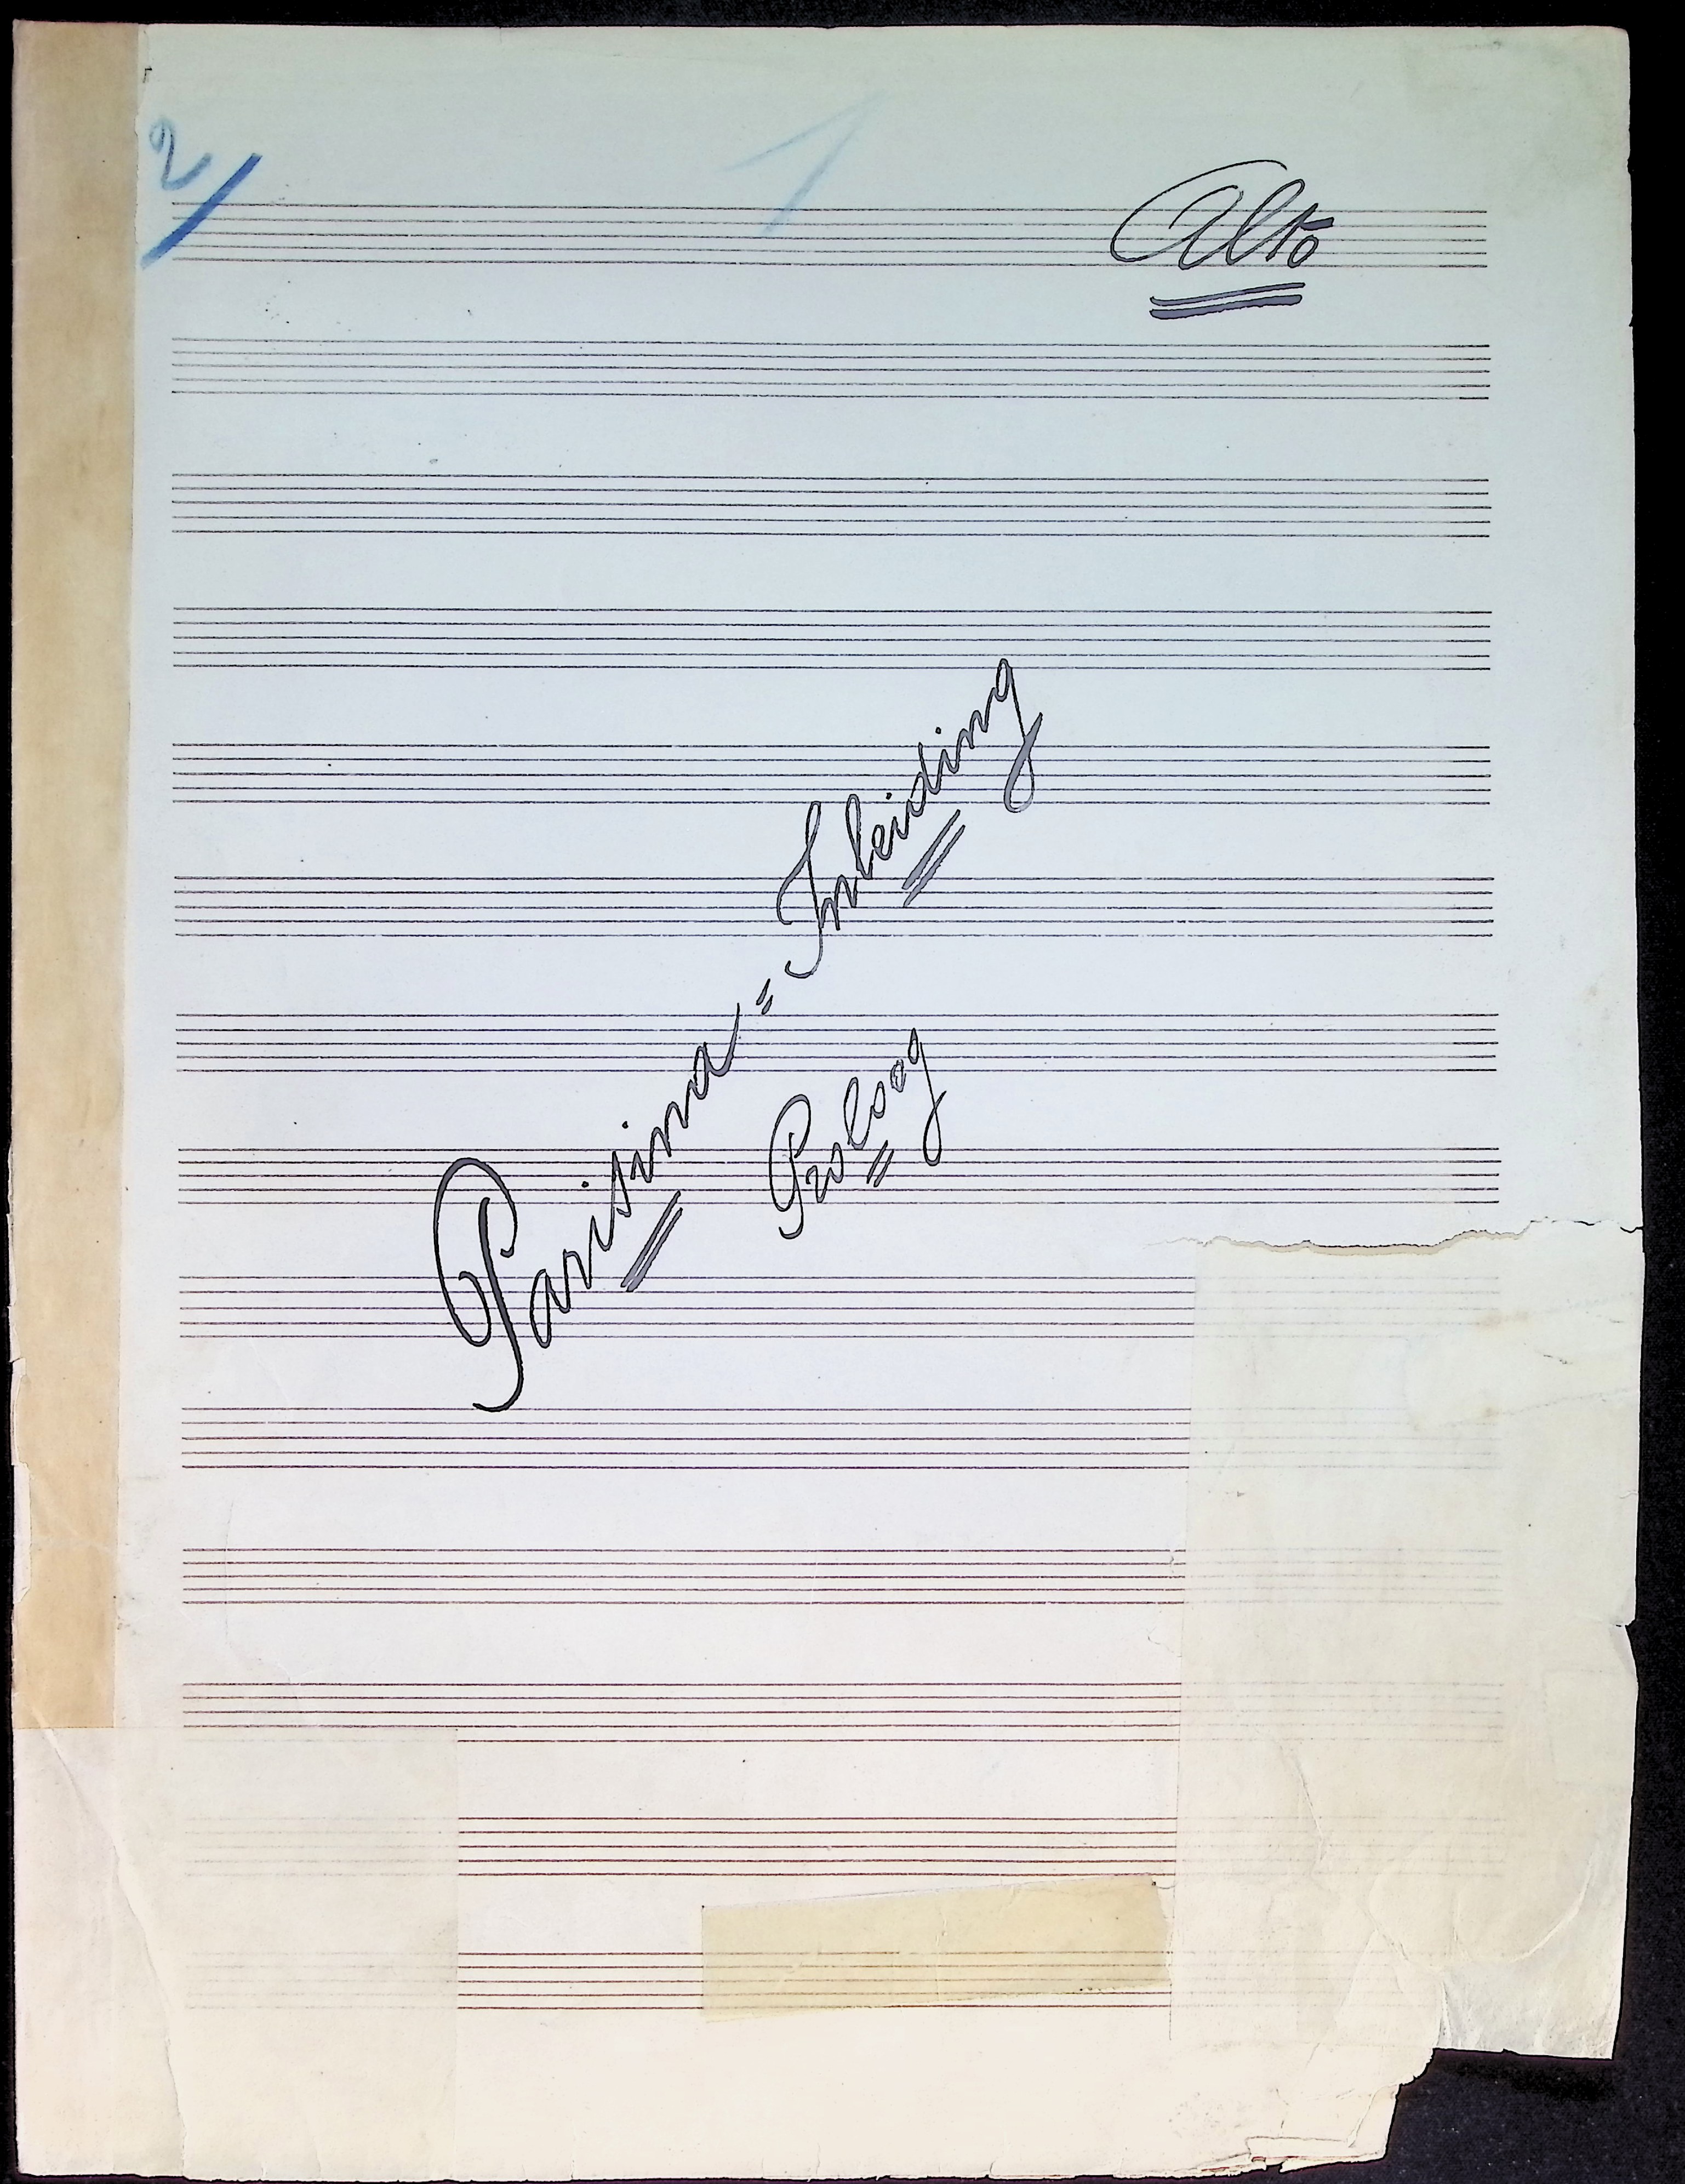 2/
1
Alto
Parisina = Inleiding
Proloog